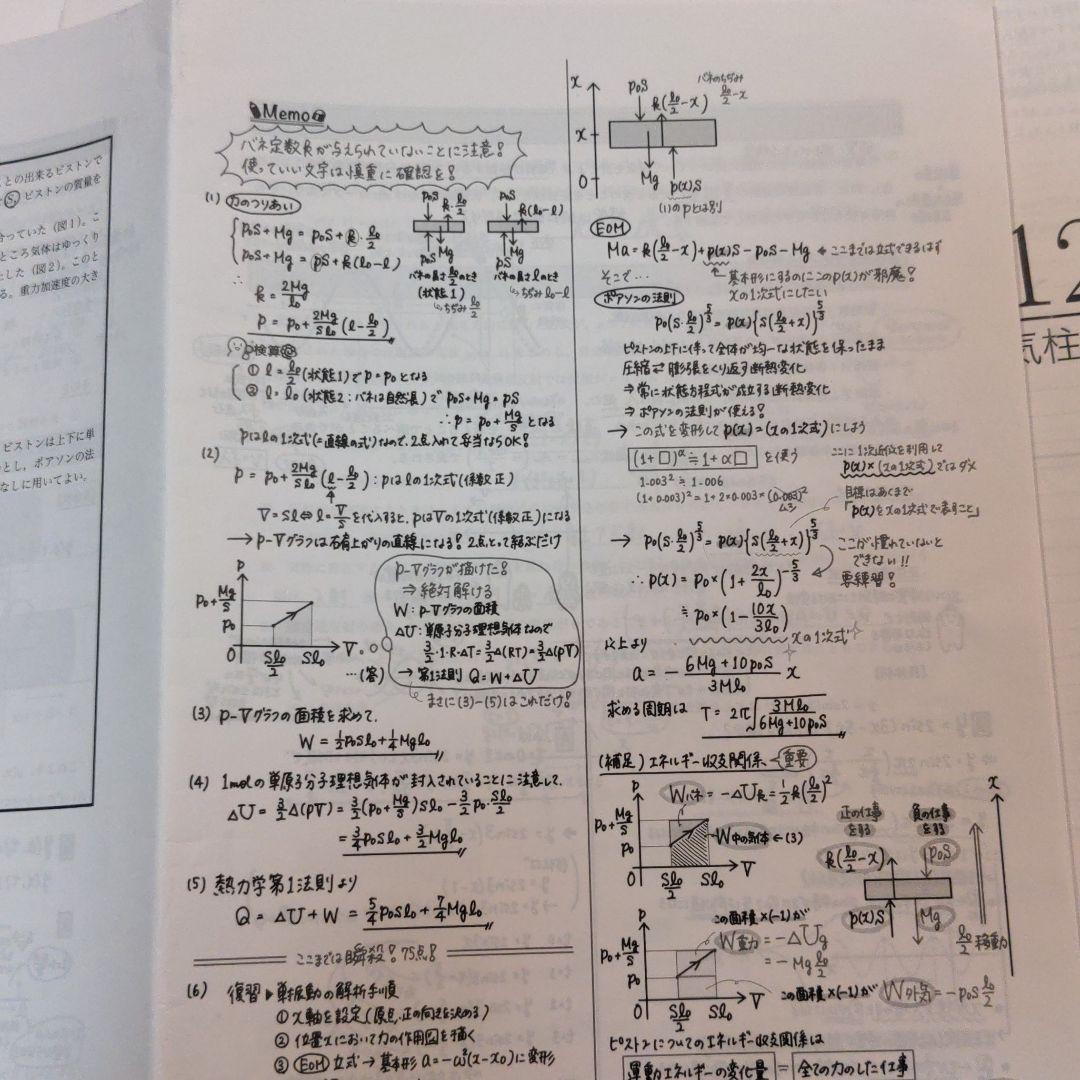 との出来るピストンで
S。ピストンの質量を
合っていた（図1）。こ
ところ気体はゆっくり
した（図2）。このと
る。重力加速度の大き
ピストンは上下に単
とし，ポアソンの法
なしに用いてよい。
Memo
バネ定数kが与えられていないことに注意！
使っていい文字は慎重に確認を！
(1) 力のつりあい
p₀S+Mg = p₀S+k・l₀/2
p₀S+Mg = pS+k(l₀-l)
∴
k = 2Mg/l₀
p = p₀+2Mg/Sl₀(l-l₀/2)
p₀S k・l₀/2
Mg
p₀S
バネの長さl₀/2のとき
(状態1)
ちぢみl₀/2
p₀S k(l₀-l)
Mg
pS
バネの長さlのとき
ちぢみl₀-l
検算
① l=l₀/2(状態1)でp=p₀となる
② l=l₀(状態2:バネは自然長)でp₀S+Mg=pS
∴p=p₀+Mg/Sとなる
pはlの1次式(=直線の式)なので、2点入れて妥当ならOK！
(2)
p = p₀+2Mg/Sl₀(l-l₀/2):pはlの1次式(係数正)
V=Sl⇔l=V/Sを代入すると、pはVの1次式(係数正)になる
→p-Vグラフは右肩上がりの直線になる！2点とって結ぶだけ
p
p₀+Mg/S
p₀
0 Sl₀/2 Sl₀ V
…(答)
p-Vグラフが描けた！
⇒絶対解ける
W:p-Vグラフの面積
ΔU:単原子分子理想気体なので
3/2・1・R・ΔT=3/2Δ(RT)=3/2Δ(pV)
→第1法則 Q=W+ΔU
まさに(3)-(5)はこれだけ！
(3) p-Vグラフの面積を求めて、
W = 1/2p₀Sl₀+1/4Mgl₀
(4) 1molの単原子分子理想気体が封入されていることに注意して、
ΔU=3/2Δ(pV)=3/2(p₀+Mg/S)Sl₀-3/2p₀・Sl₀/2
=3/4p₀Sl₀+3/2Mgl₀
(5) 熱力学第1法則より
Q = ΔU+W = 5/4p₀Sl₀+7/4Mgl₀
ここまでは瞬殺！75点！
(6) 復習▶単振動の解析手順
① x軸を設定(原点、正の向きを決める)
② 位置xにおいて力の作用図を描く
③ EOM 立式→基本形a=-ω²(x-x₀)に変形
x
x
0
p₀S
k(l₀/2-x)
バネのちぢみ
l₀/2-x
Mg
p(x)S
(1)のpとは別
EOM
Ma=k(l₀/2-x)+p(x)S-p₀S-Mg ←ここまでは立式できるはず
そこで… 基本形にするのにこのp(x)が邪魔！
xの1次式にしたい
ポアソンの法則
p₀(S・l₀/2)^5/3=p(x){S(l₀/2+x)}^5/3
ピストンの上下に伴って全体が均一な状態を保ったまま
圧縮⇄膨張をくり返す断熱変化
⇒常に状態方程式が成立する断熱変化
⇒ポアソンの法則が使える！
→この式を変形してp(x)=(xの1次式)にしよう
(1+□)^α≒1+α□を使う
1.003²≒1.006
(1+0.003)²=1+2×0.003+(0.003)²
ムシ
ここに1次近似を利用して
p(x)×(xの1次式)ではダメ
目標はあくまで
「p(x)をxの1次式で表すこと」
→ p₀(S・l₀/2)^5/3=p(x){S(l₀/2+x)}^5/3
ここが慣れていないと
できない!!
要練習！
∴p(x)=p₀×(1+2x/l₀)^-5/3
≒p₀×(1-10x/3l₀)
xの1次式
以上より
a=-6Mg+10p₀S/3Ml₀ x
求める周期は T=2π√3Ml₀/6Mg+10p₀S
(補足)エネルギー収支関係 重要
Wバネ=-ΔUk=1/2k(l₀/2)²
p
p₀+Mg/S
p₀
0 Sl₀/2 Sl₀ V
W中の気体←(3)
正の仕事
をする
負の仕事
をする
k(l₀/2-x)
p₀S
p(x)S
Mg
x
l₀/2移動
この面積×(-1)が
W重力=-ΔUg
=-Mgl₀/2
p
p₀+Mg/S
p₀
0 Sl₀/2 Sl₀ V
この面積×(-1)が W外気=-p₀Sl₀/2
ピストンについてのエネルギー収支関係は
運動エネルギーの変化量=全ての力のした仕事
12
気柱